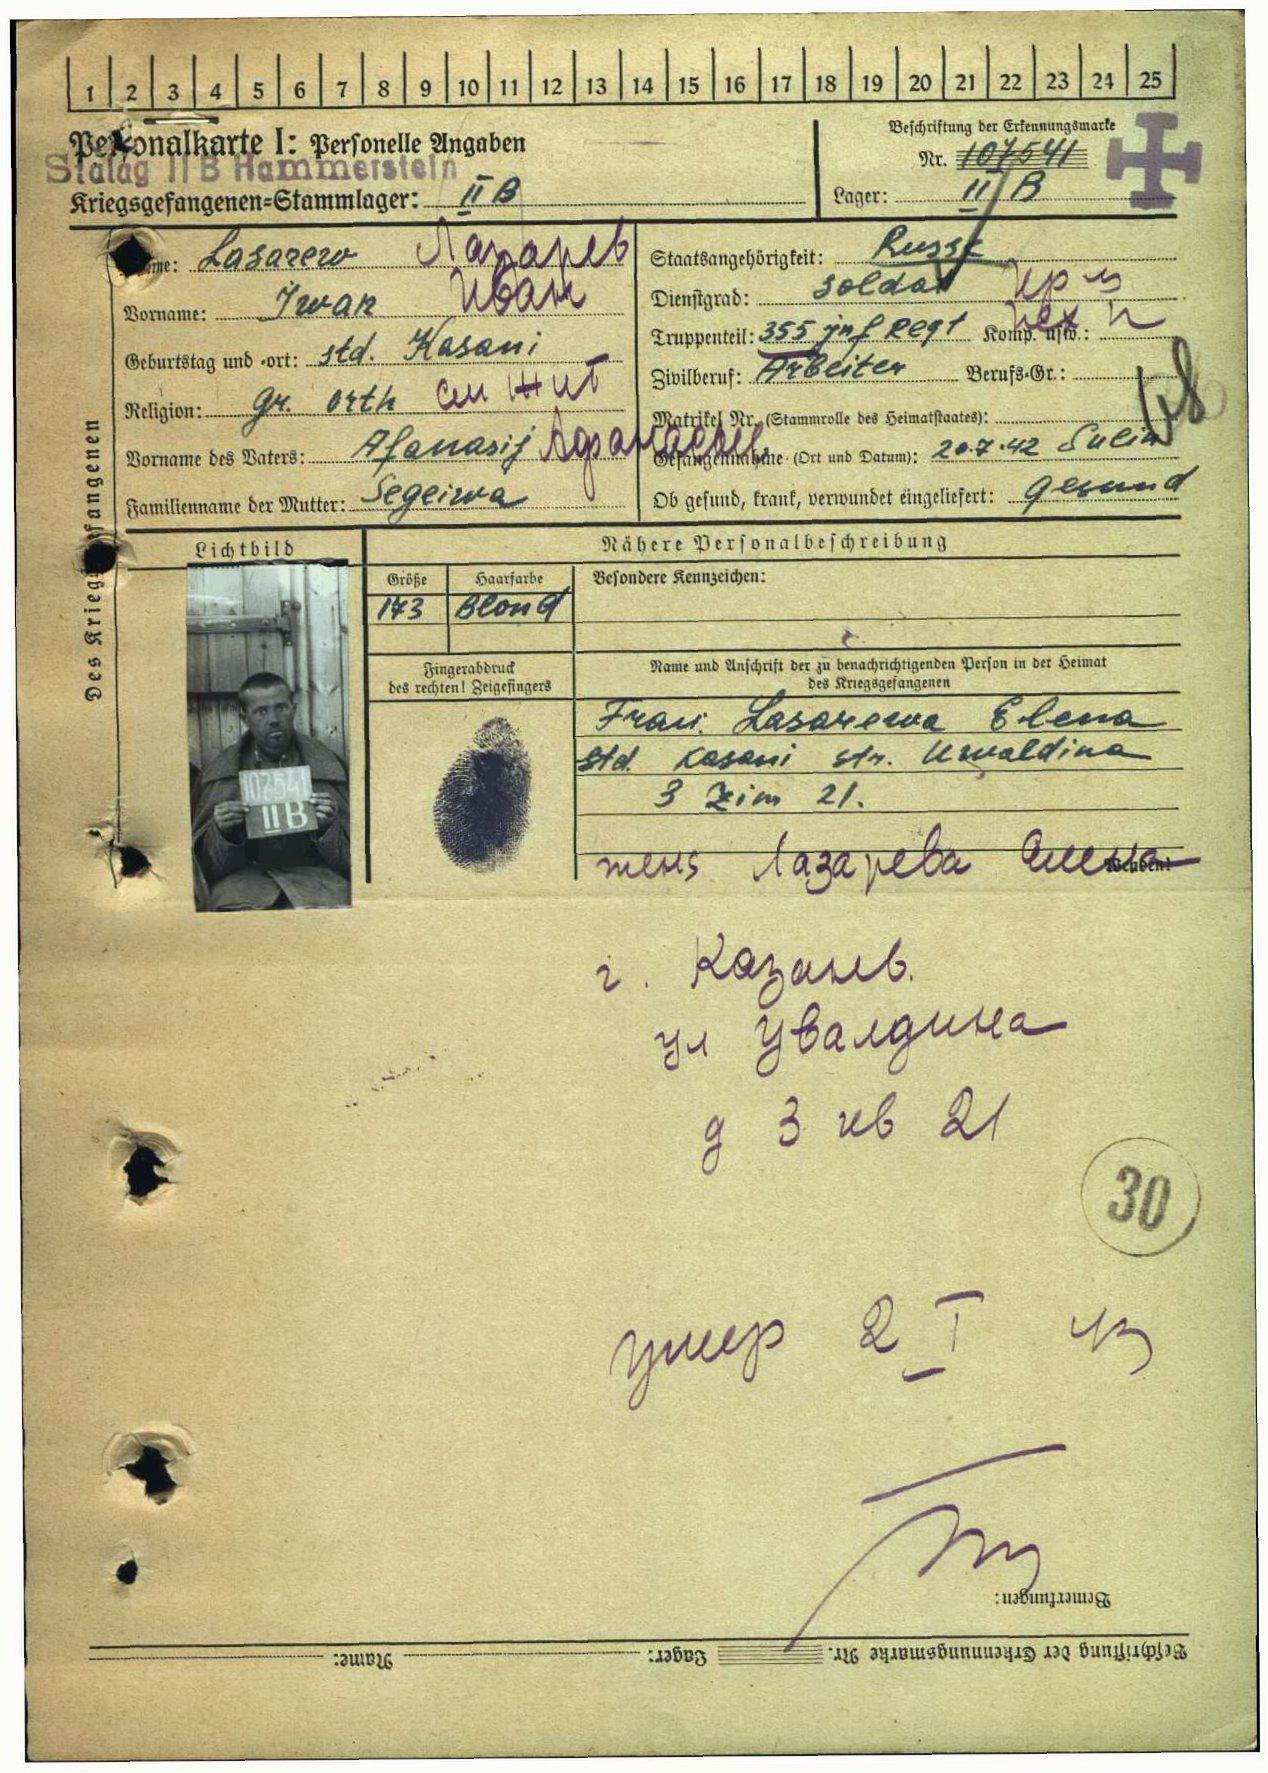 1 2 3 4 5 6 7 8 9 10 11 12 13 14 15 16 17 18 19 20 21 22 23 24 25
Personalkarte I: Personelle Angaben
Stalag II B Hammerstein
Kriegsgefangenen=Stammlager: II B
Beschriftung der Erkennungsmarke
Nr. 107541
Lager: II B
Des Kriegsgefangenen
Name: Lasarew Лазарев
Vorname: Iwan Иван
Geburtstag und -ort: std. Kasani
Religion: gr. orth
Vorname des Vaters: Afanasij
Familienname der Mutter: Segeiwa
Staatsangehörigkeit: Russe
Dienstgrad: Soldat
Truppenteil: 355 jnf Regt Komp. usw.:
Zivilberuf: Arbeiter Berufs-Gr.:
Matrikel Nr. (Stammrolle des Heimatstaates):
Gefangennahme (Ort und Datum): 20.7.42 Sulin
Ob gesund, krank, verwundet eingeliefert: gesund
Lichtbild
107541
II B
Nähere Personalbeschreibung
Größe Haarfarbe Besondere Kennzeichen:
173 Blond
Fingerabdruck
des rechten! Zeigefingers
Name und Anschrift der zu benachrichtigenden Person in der Heimat
des Kriegsgefangenen
Frau. Lasarewa Elena
Std. Kasani str. Uwaldina
3 Zim 21.
жена Лазарева Елена
Wenden!
г. Казань.
ул Увалдина
д 3 кв 21
30
умер 2 I 43
Bemerkungen:
Beschriftung der Erkennungsmarke Nr. Lager: Name: